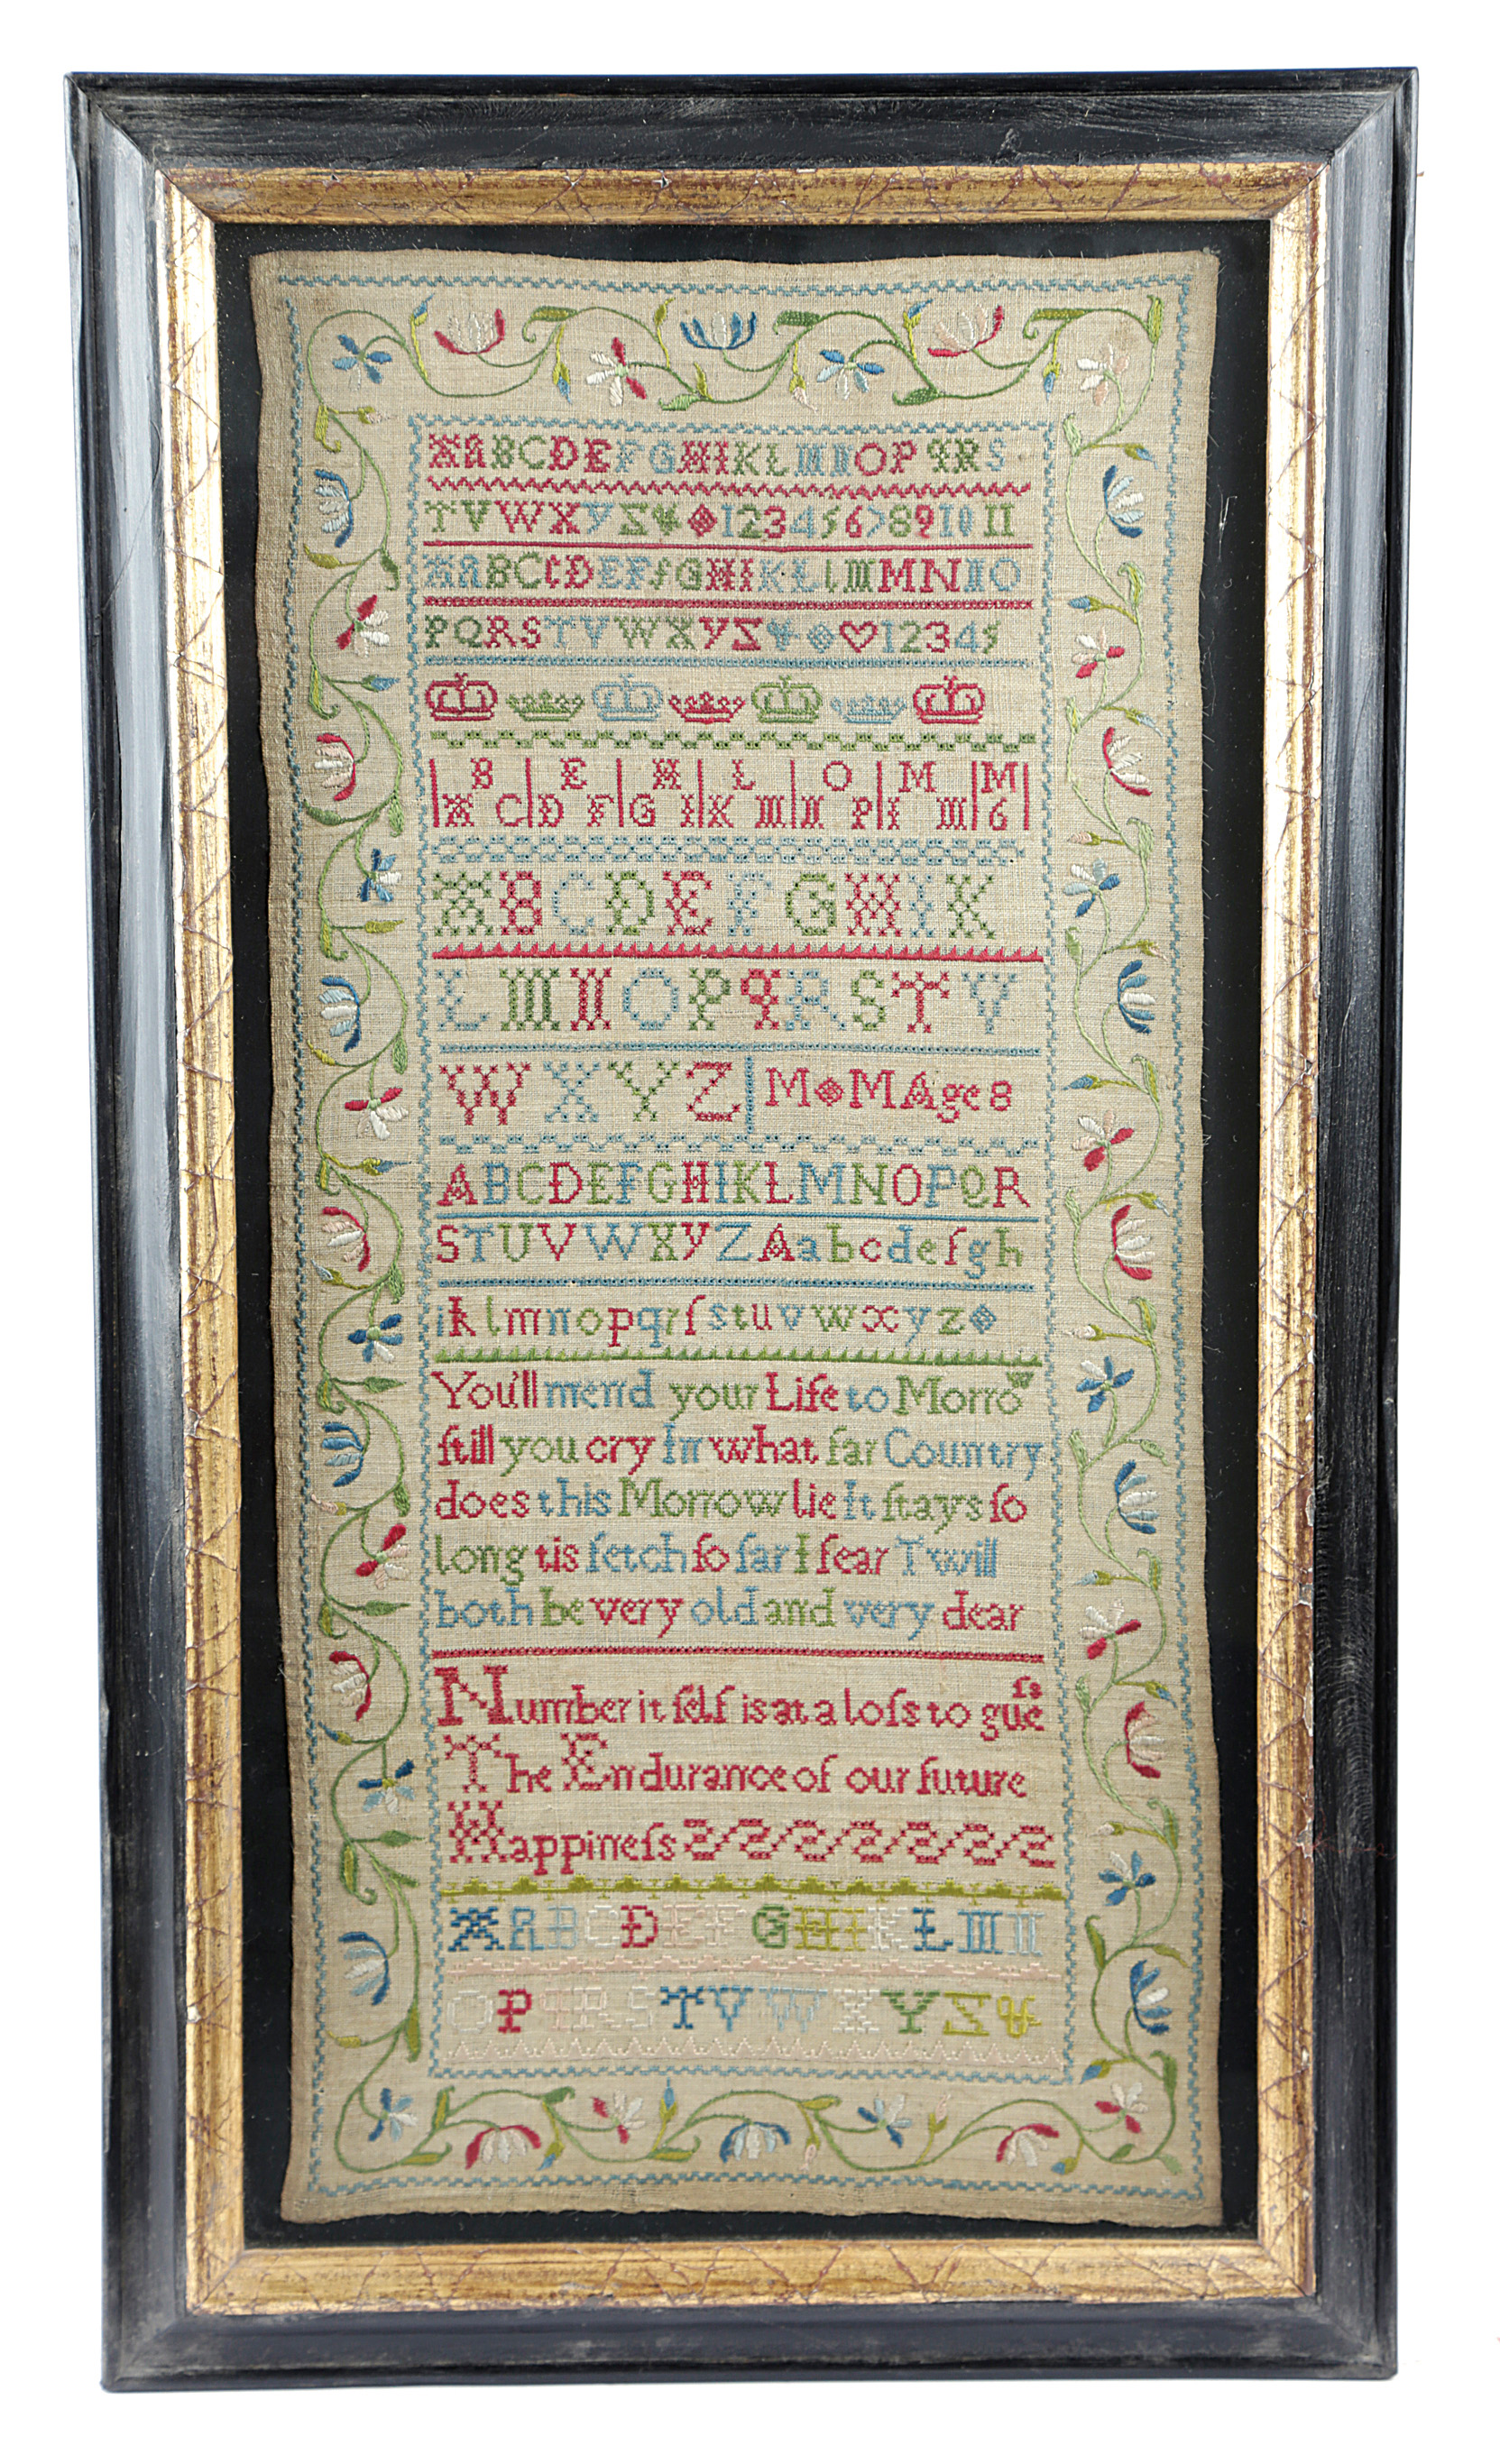 AABCDEFGHIKLMNOPqRS
TVWXYZ& 1234567891011
AABCCDEFfGHIKLlMMNNO
PQRSTVWXYZ& 12345
B E H L O M M
A C D F G I K M N P I M 6
ABCDEFGHIK
LMNOPqRSTV
WXYZ M M Age 8
ABCDEFGHIKLMNOPQR
STUVWXYZ Aabcdefgh
iklmnopqrſstuvwxyz
You'll mend your Life to Morrow
ſtill you cry In what far Country
does this Morrow lie It ſtays ſo
long tis fetch ſo far I fear Twill
both be very old and very dear
Number it ſelf is at a loſs to gueſs
The Endurance of our future
Happineſs
AABCDEFGHIKLMN
OPqRSTVWXYZ&